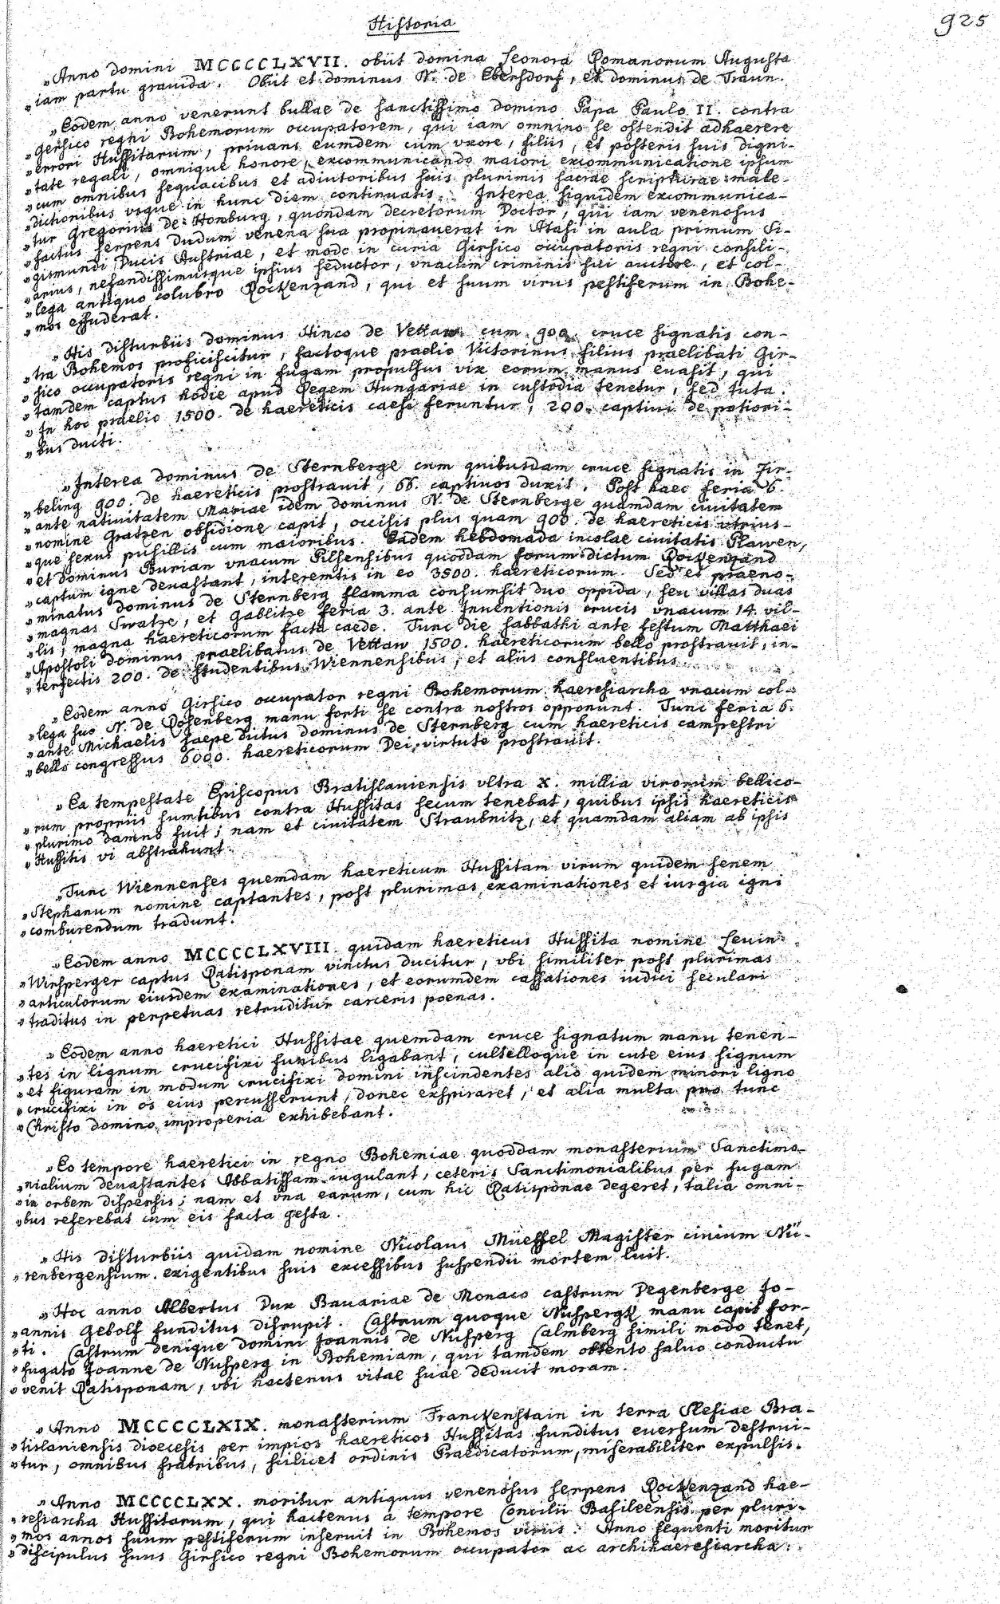 Historia
925
„Anno domini MCCCCLXVII. obiit domina Leonora Romanorum Augusta
„iam partu gravida. Obiit et dominus N. de Ebersdorf, et dominus de Traun.
„Eodem anno venerunt bullae de sanctissimo domino Papa Paulo II. contra
„Gersico regni Bohemorum occupatorem, qui iam omnino se ostendit adhaerere
„errori Hussitarum, privans eumdem cum vxore, filiis, et posteris suis digni-
„tate regali, omnique honore, excommunicando maiori excommunicatione ipsum
„cum omnibus sequacibus et adiutoribus suis plurimis sacrae scripturae male-
„dictionibus vsque in hunc diem continuatis. Interea siquidem excommunica-
„tur Gregorius de Homburg, quondam decretorum Doctor, qui iam venenosus
„factus serpens dudum venena sua propinauerat in Itasi in aula primum Si-
„gismundi Ducis Austriae, et modo in curia Girsico occupatoris regni consili-
„arius, nefandissimusque ipsius seductor, vnacum criminis sui auctore, et col-
„lega antiquo colubro Rockenzand, qui et suum virus pestiferum in Bohe-
„mos effuderat.
„His disturbiis dominus Hinco de Vettaw cum 900. cruce signatis con-
„tra Bohemos proficiscitur, factoque praelio Victorinus filius praelibati Gir-
„sico occupatoris regni in fugam propulsus vix eorum manus euasit, qui
„tamdem captus hodie apud Regem Hungariae in custodia tenetur, sed tuta.
„In hoc praelio 1500. de haereticis caesi feruntur, 200. captiui de potiori-
„bus ducti.
„Interea dominus de Sternberge cum quibusdam cruce signatis in Zir-
„beling 900. de haereticis prostrauit, 66. captiuos duxit. Post haec feria 6.
„ante natiuitatem Mariae idem dominus N. de Sternberge quamdam ciuitatem
„nomine Gratzen obsidione capit, occisis plus quam 900. de haereticis vtrius-
„que sexus pusillis cum maioribus. Eadem hebdomada incolae ciuitatis Plawen,
„et dominus Burian vnacum Pilsensibus quoddam forum dictum Rockenzand
„captum igne deuastant, interemtis in eo 3500. haereticorum. Sed et praeno-
„minatus dominus de Sternberg flamma consumsit duo oppida, seu villas duas
„magnas Swatze, et Gablitze feria 3. ante Inuentionis crucis vnacum 14. vil-
„lis, magna haereticorum facta caede. Tunc die sabbathi ante festum Matthaei
„Apostoli dominus praelibatus de Vettaw 1500. haereticorum bello prostrauit, in-
„terfectis 200. de studentibus Wiennensibus, et aliis confluentibus.
„Eodem anno Girsico occupator regni Bohemorum haeresiarcha vnacum col-
„lega suo N. de Rosenberg manu forti se contra nostros opponunt. Tunc feria 6.
„ante Michaelis saepe dictus dominus de Sternberg cum haereticis campestri
„bello congressus 6000. haereticorum Dei virtute prostrauit.
„Ea tempestate Episcopus Bratislaniensis vltra X. millia virorum bellico-
„rum propriis sumtibus contra Hussitas secum tenebat, quibus ipsis haereticis
„plurimo damno fuit; nam et ciuitatem Straubnitz, et quamdam aliam ab ipsis
„Hussitis vi abstrahunt.
„Tunc Wiennenses quemdam haereticum Hussitam virum quidem senem
„Stephanum nomine captantes, post plurimas examinationes et iurgia igni
„comburendum tradunt.
„Eodem anno MCCCCLXVIII. quidam haereticus Hussita nomine Leuin
„Wirsperger captus Ratisponam vinctus ducitur, vbi similiter post plurimas
„articulorum eiusdem examinationes, et eorumdem cassationes iudici seculari
„traditus in perpetuas retruditur carceris poenas.
„Eodem anno haeretici Hussitae quemdam cruce signatum manu tenen-
„tes in lignum crucifixi funibus ligabant, cultelloque in cute eius signum
„et figuram in modum crucifixi domini inscindentes alio quidem minori ligno
„crucifixi in os eius percusserunt, donec exspiraret, et alia multa pro tunc
„Christo domino improperia exhibebant.
„Eo tempore haeretici in regno Bohemiae quoddam monasterium Sanctimo-
„nialium deuastantes Abbatissam iugulant, ceteris Sanctimonialibus per fugam
„in orbem dispersis; nam et vna earum, cum hic Ratisponae degeret, talia omni-
„bus referebat cum eis facta gesta.
„His disturbiis quidam nomine Nicolaus Müessel Magister ciuium Nü-
„renbergensium exigentibus suis excessibus suspendii mortem luit.
„Hoc anno Albertus Dux Bauariae de Monaco castrum Degenberge Jo-
„annis Gebolf funditus disrupit. Castrum quoque Nusperg manu capit for-
„ti. Castrum denique domini Joannis de Nusperg Calmberg simili modo tenet,
„fugato Joanne de Nusperg in Bohemiam, qui tamdem obtento saluo conductu
„venit Ratisponam, vbi hactenus vitae suae deducit moram.
„Anno MCCCCLXIX. monasterium Franckenstain in terra Slesiae Bra-
„tislaniensis dioecesis per impios haereticos Hussitas funditus euersum destrui-
„tur, omnibus fratribus, scilicet ordinis Praedicatorum, miserabiliter expulsis.
„Anno MCCCCLXX. moritur antiquus venenosus serpens Rockenzand hae-
„resiarcha Hussitarum, qui hactenus a tempore Concilii Basileensis per pluri-
„mos annos suum pestiferum inseruit in Bohemos virus. Anno sequenti moritur
„discipulus suus Girsico regni Bohemorum occupator ac archihaeresiarcha.